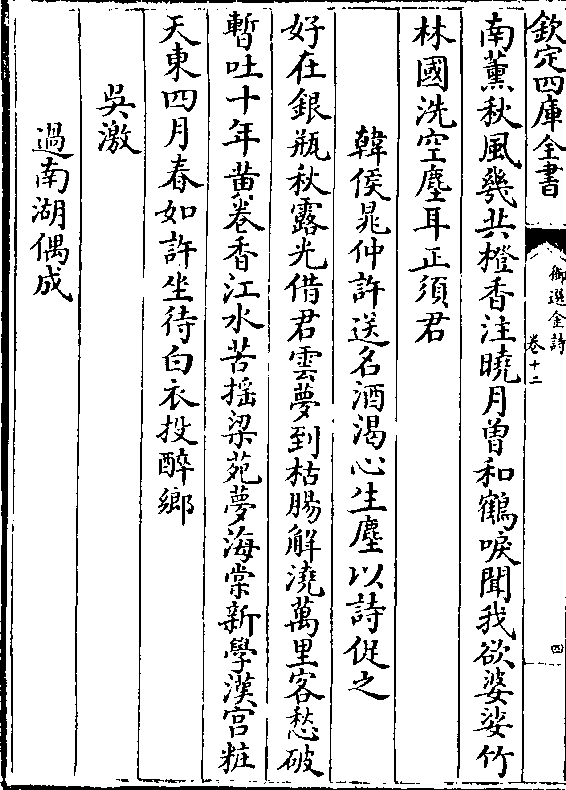 欽定四庫全書
御選金詩
卷十二
四
南薰秋風幾共橙香注曉月曽和鶴唳聞我欲婆娑竹
林國洗空塵耳正須君
韓侯晁仲許送名酒渴心生塵以詩促之
好在銀瓶秋露光借君雲夢到枯腸解澆萬里客愁破
暫吐十年黄卷香江水苦揺梁苑夢海棠新學漢宫粧
天東四月春如許坐待白衣投醉鄉
吳激
過南湖偶成